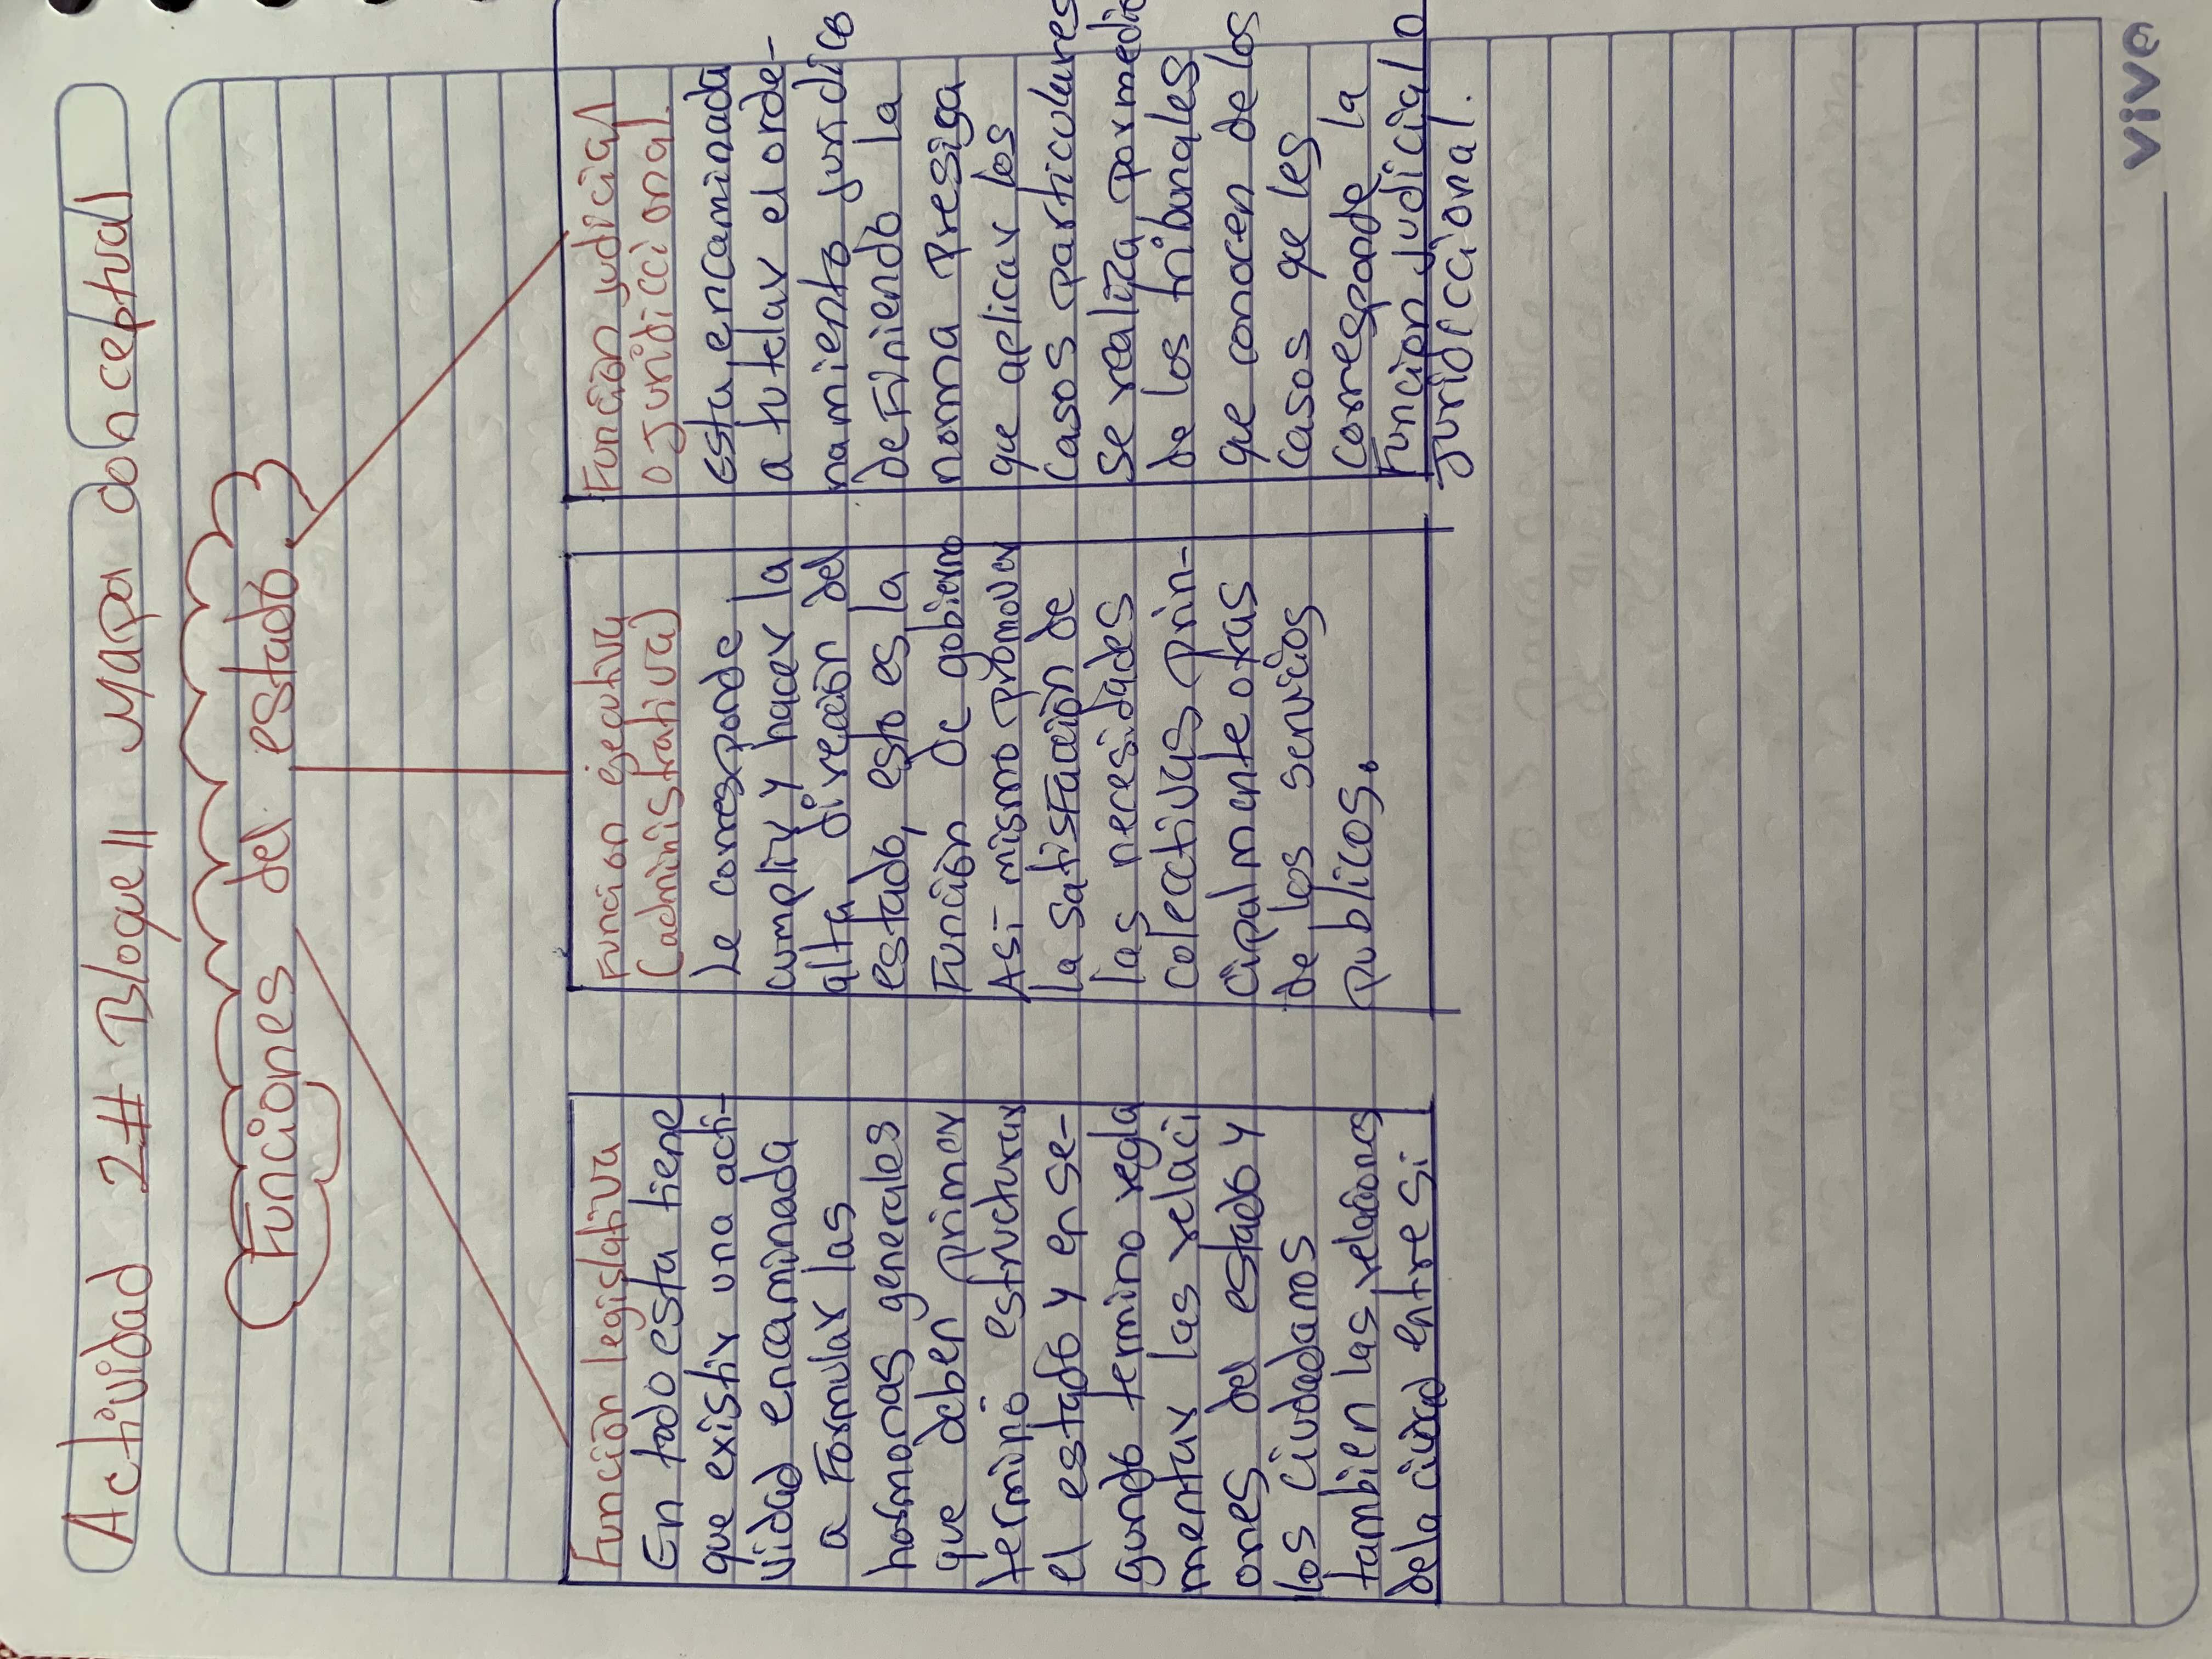 Actividad 2# Bloque II Mapa conceptual
Funciones del estado.
Función legislativa
En todo esta tiene
que existir una acti-
vidad encaminada
a Formular las
normonas generales
que deben primer
termino estructurar
el estado y en se-
gundo termino regla
mentar las relaci
ones del estado y
los ciudadanos
tambien las relaciones
de la ciudad entre si
Funcion ejecutiva
(administrativa)
Le corresponde
cumplir y hacer la
alta dirección del
estado, esto es la
Función de gobierno
Asi mismo promover
la satisfacción de
las necesidades
colectivas prin-
cipalmente otras
de los servicios
publicos.
Función judicial
o Juridiccional.
esta encaminada
a tutelar el orde-
namiento juridico
deFiniendo la
norma Presiga
que aplicar los
Casos particulares
Se realiza por medio
de los tribunales
que conocen de los
Casos que les
corresponde la
Funcion Judicial o
Juridiccional.
viva